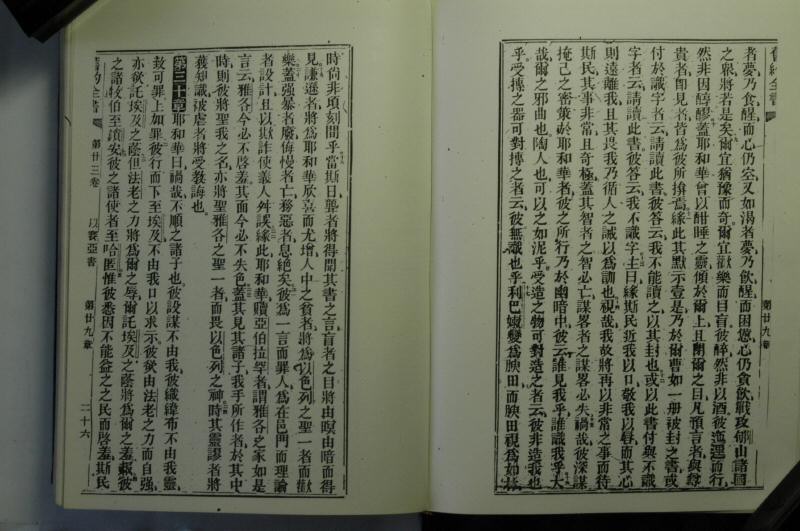 舊約全書
第廿九章
者夢乃食醒而心仍空又如渴者夢乃飲醒而困憊心仍貪飲戰攻郇山諸國
之眾將若是矣爾宜猶豫而奇爾宜歡樂而目盲彼醉然非以酒彼迤邐而行
然非因醇醪蓋耶和華曾以酣睡之靈傾於爾上且閉爾之目凡預言者與尊
貴者即見者皆為彼所揜焉緣此其默示壹是乃於爾曹如一册被封之書或
付於識字者云請讀此書彼答云我不能讀之以其封也或以此書付與不識
字者云請讀此書彼答云我不識字主曰緣斯民近我以口敬我以唇而其心
則遠離我且其畏我乃循人之誡以為訓也視哉我故將再以非常之事而待
斯民其事非常且奇極蓋其智者之智必亡謀畧者之謀畧必失禍哉彼深謀
掩己之密策於耶和華者彼之所行乃於幽暗中彼云誰見我乎誰識我乎大
哉爾之邪曲也陶人也可以之如泥乎受造之物可對造之者云彼非造我也
乎受摶之器可對摶之者云彼無識也乎利巴嫩變為腴田而腴田視為如林
時尚非頃刻間乎當斯日聾者將得聞其書之言盲者之目將由暝由暗而得
見謙遜者將為耶和華欣喜而尤堵人中之貧者將為以色列之聖一者而歡
樂蓋強暴者廢侮慢者亡務惡者息絕矣彼為一言而罪人為在邑門而理論
者設計且以欺詐使義人舛誤緣此耶和華贖亞伯拉罕者謂雅各之家如是
言云雅各今必不啓羞其面今必不失色蓋其見其諸子我手所作者於其中
時則彼將聖我之名亦將聖雅各之聖一者而畏以色列之神時其靈謬者將
獲知識被虐者將受教誨也
第三十章耶和華曰禍哉不順之諸子也彼設謀不由我彼織緯布不由我靈
致可罪上加罪彼行而下至埃及不由我口以求示彼欲由法老之力而自強
亦欲託埃及之蔭但法老之力將為爾之辱爾託埃及之蔭將為爾之羞緣彼
之諸牧伯至瑣安彼之諸使者至哈匿惟彼悉因不能益之之民而啓羞斯民
舊約全書
第廿三卷
以賽亞書
第廿九章
二十六